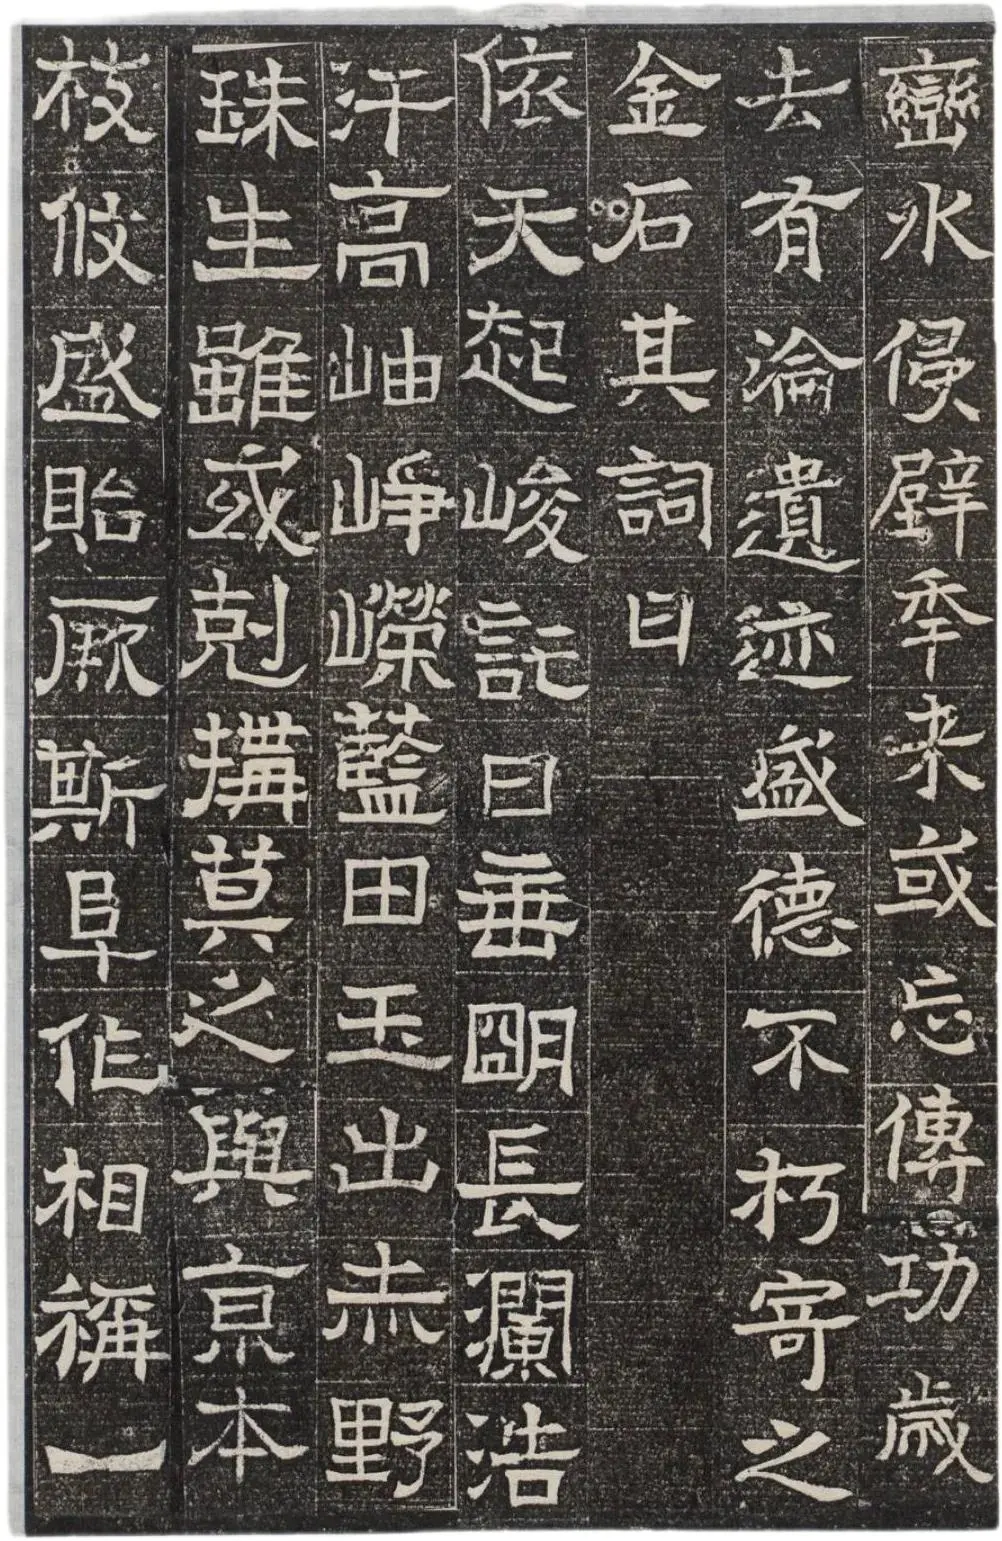 巒水侵壁季来或忘傳功歲
去有淪遺迹盛德不朽寄之
金石其詞曰
依天起峻託日垂明長瀾浩
汗高岫崢嶸藍田玉出赤野
珠生雖或剋搆莫之與京本
枝攸盛貽厥斯阜作相稱一